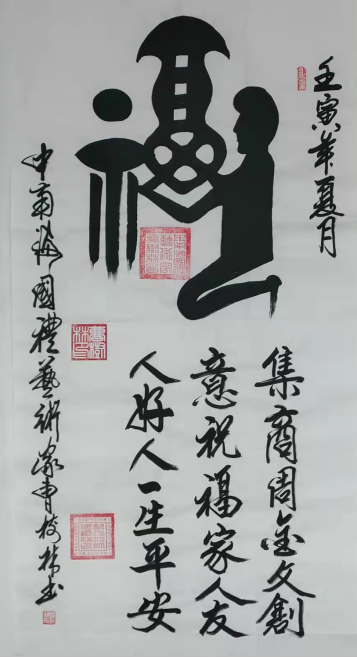 福
壬寅年夏月
集商周金文創
意祝福家人友
人好人一生平安
中南海國禮藝術家曹樹林書
曹樹林書